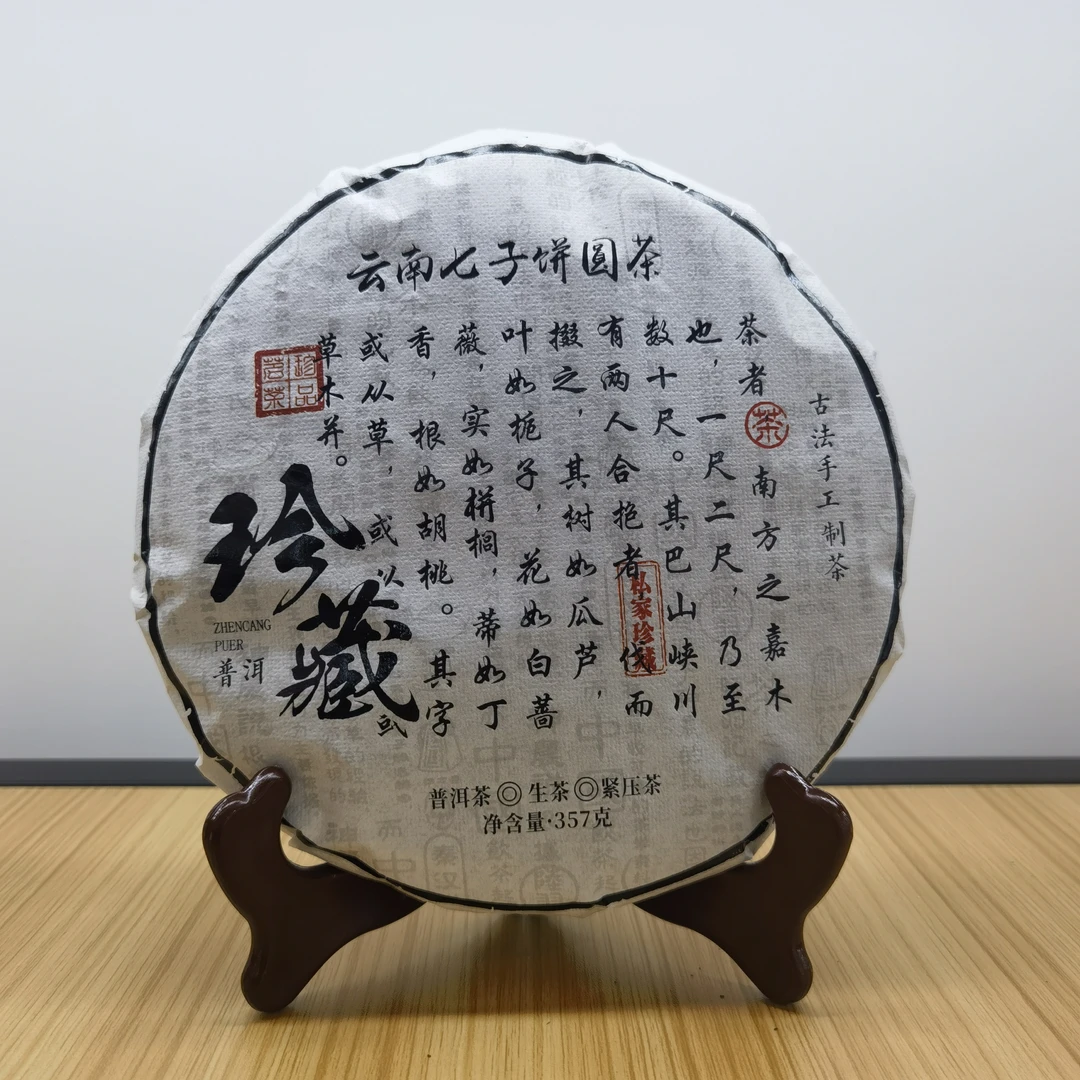 云南七子饼圆茶
古法手工制茶
茶者
茶
南方之嘉木
也，一尺二尺，乃至
数十尺。其巴山峡川
有两人合抱者伐而
掇之，其树如瓜芦，
叶如栀子，花如白蔷
薇，实如栟榈，蒂如丁
香，根如胡桃。其字
或从草，或从
或
草木并。
珍品
茗茶
私家珍藏
珍藏
ZHENCANG
PUER
普洱
普洱茶◎生茶◎紧压茶
净含量·357克